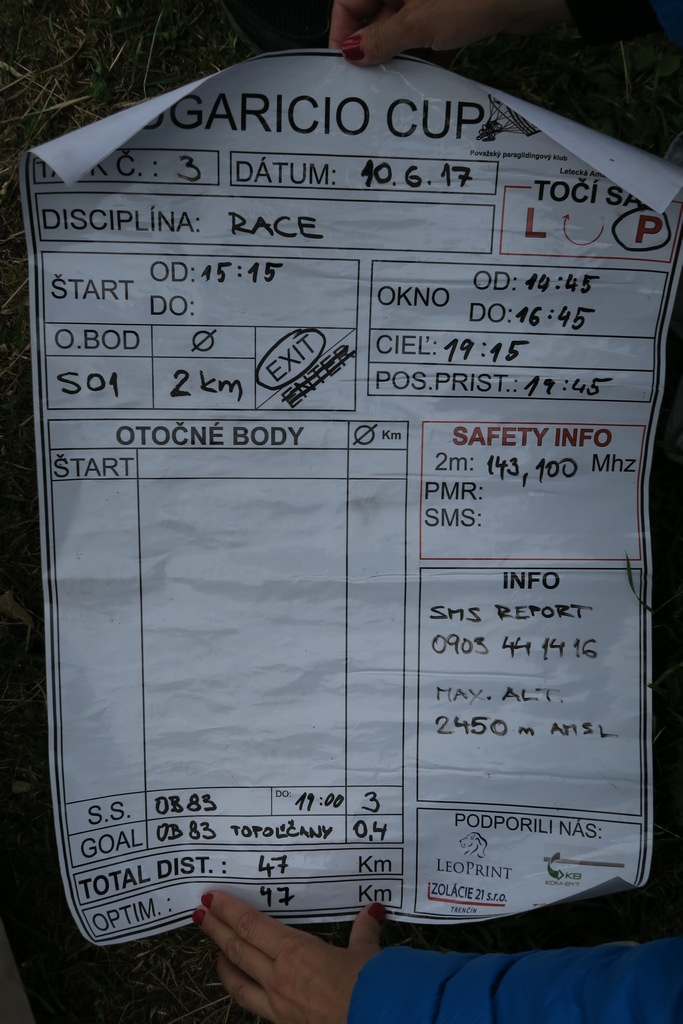 UGARICIO CUP
Považský paraglidingový klub
Letecká
K Č.: 3
DÁTUM: 10.6.17
TOČÍ SA
L P
DISCIPLÍNA: RACE
ŠTART OD: 15:15
DO:
OKNO OD: 14:45
DO: 16:45
O.BOD Ø EXIT ENTER
S01 2 km
CIEĽ: 19:15
POS.PRIST.: 19:45
OTOČNÉ BODY Ø Km
ŠTART
SAFETY INFO
2m: 143,100 Mhz
PMR:
SMS:
INFO
SMS REPORT
0903 44 14 16
MAX. ALT.
2450 m AMSL
S.S. OB83 DO: 19:00 3
GOAL OB 83 TOPOĽČANY 0,4
TOTAL DIST.: 47 Km
OPTIM.: 47 Km
PODPORILI NÁS:
LEOPRINT
KB
KOM-BYT
IZOLÁCIE 21 s.r.o.
TRENČÍN